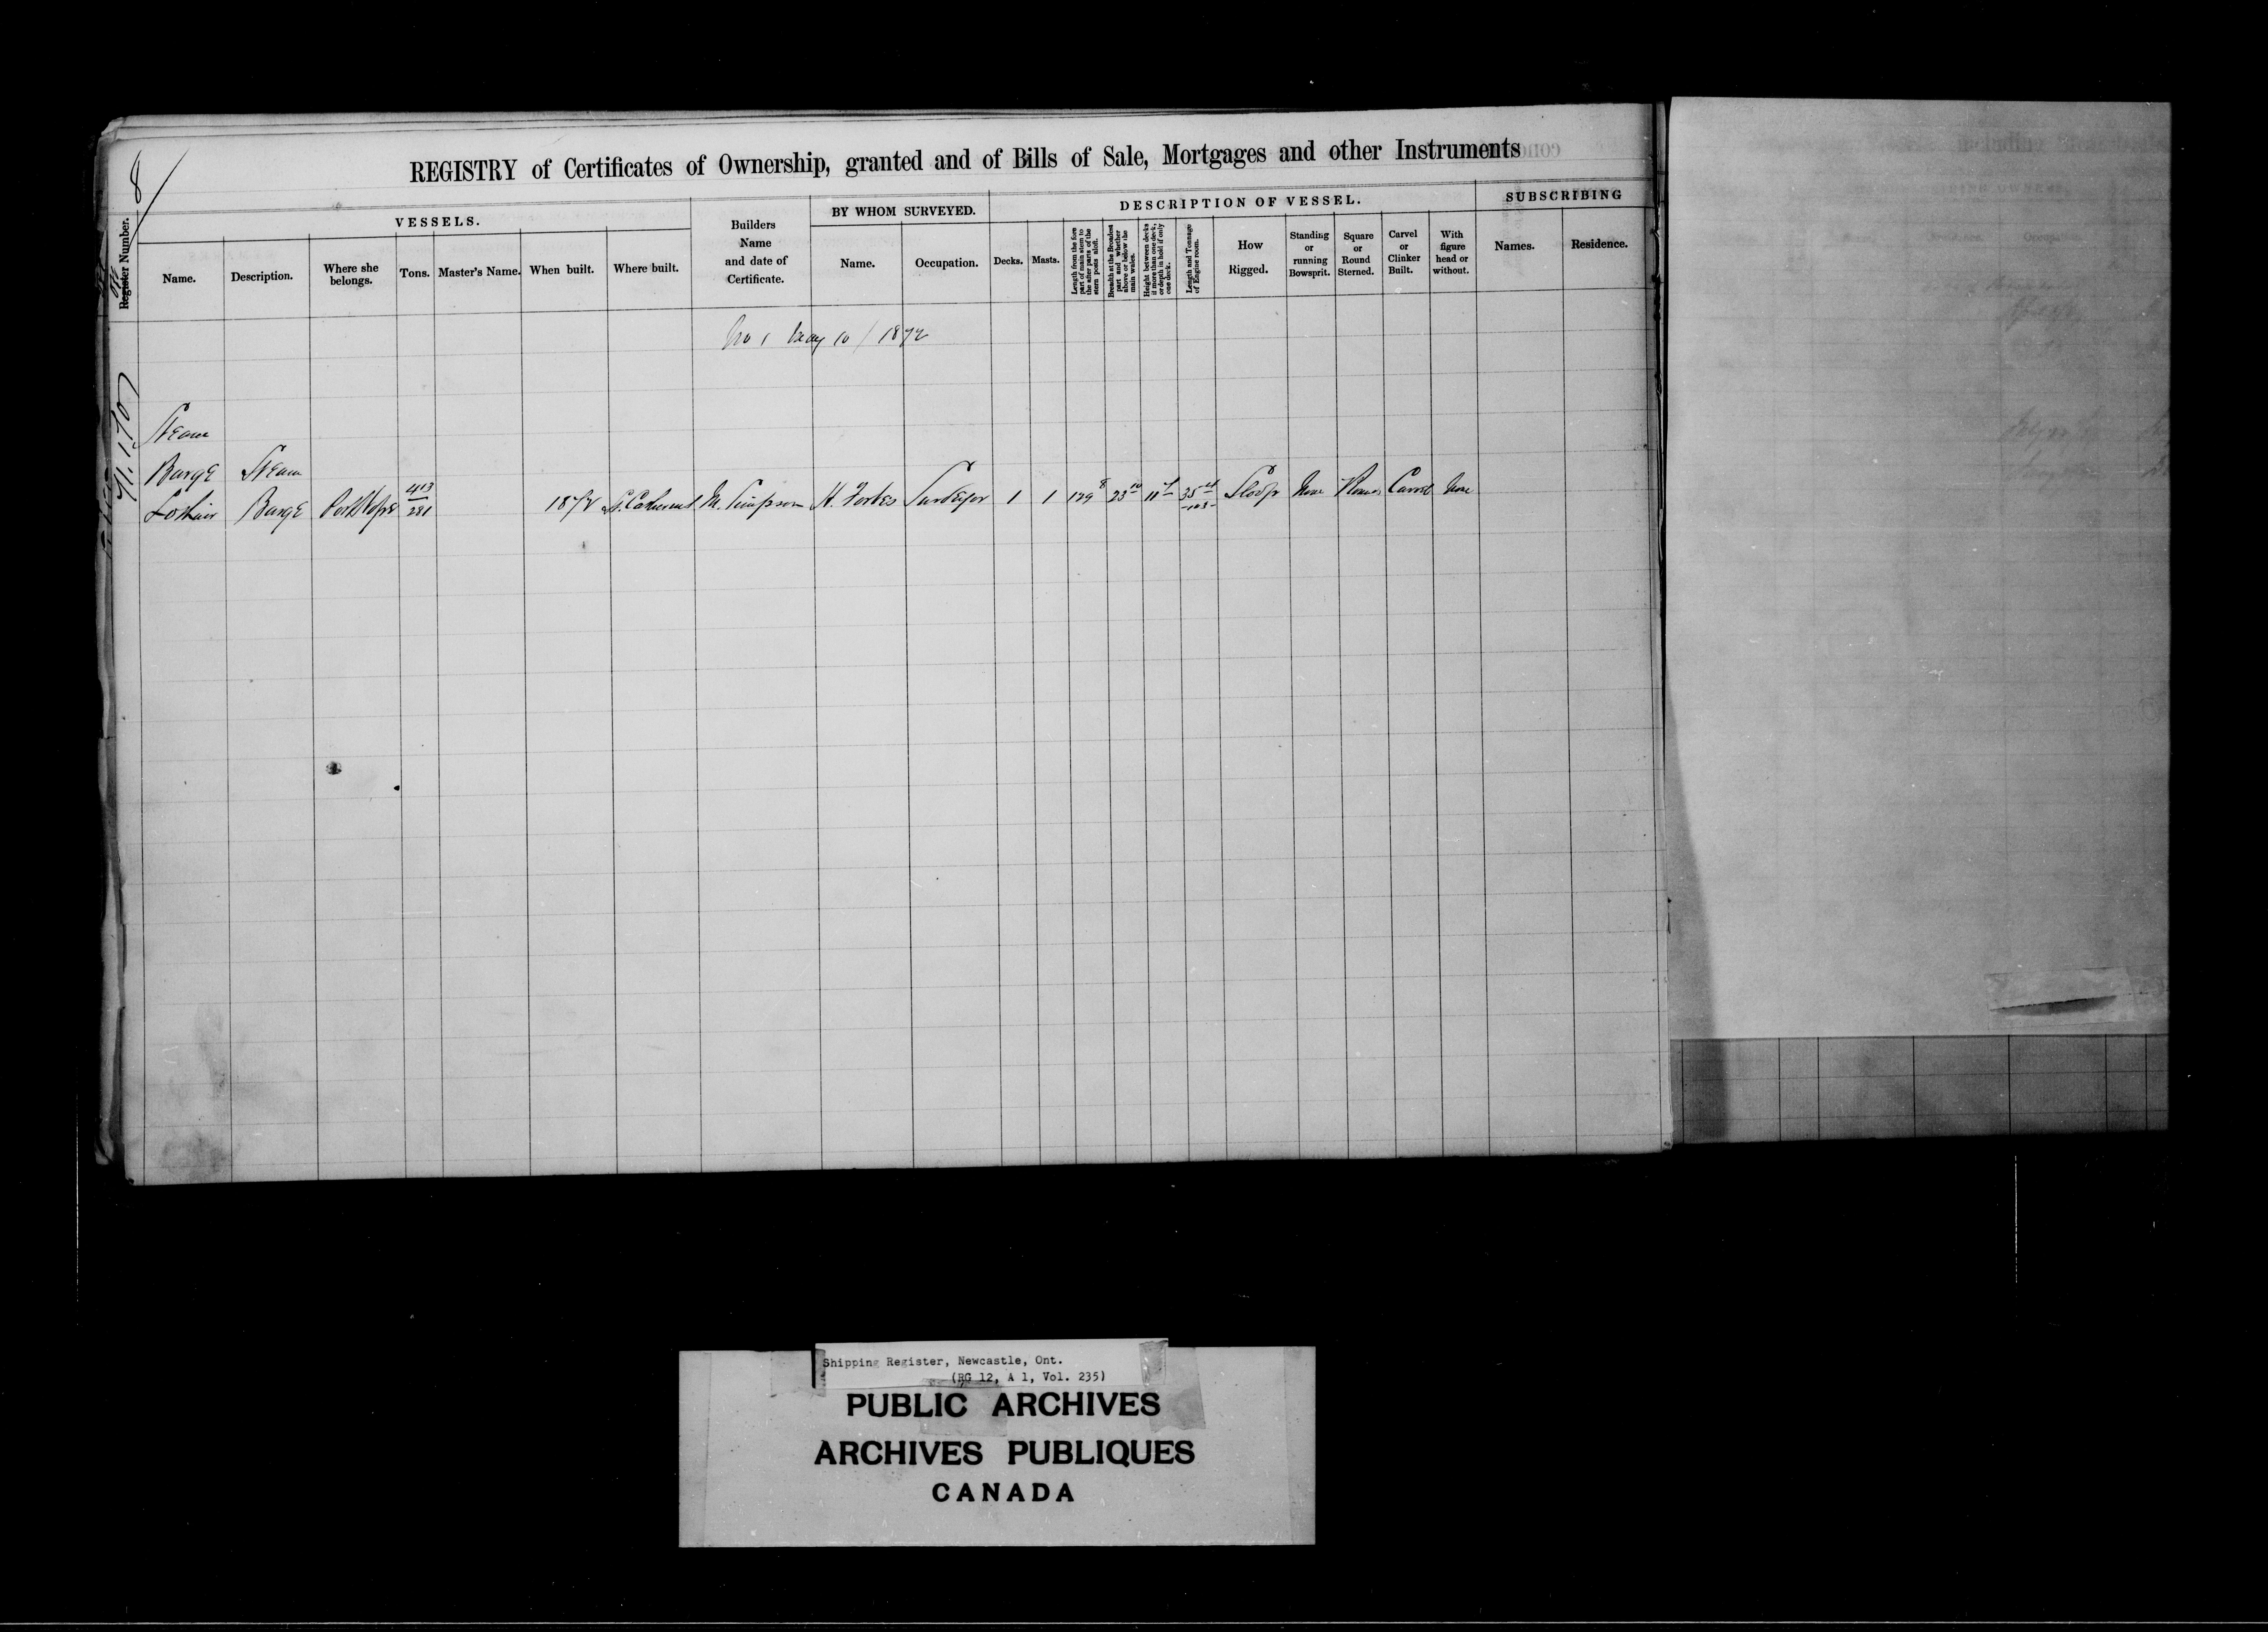 8
REGISTRY of Certificates of Ownership, granted and of Bills of Sale, Mortgages and other Instruments
Register Number.
VESSELS.
Name.
Description.
Where she belongs.
Tons.
Master's Name.
When built.
Where built.
Builders Name and date of Certificate.
BY WHOM SURVEYED.
Name.
Occupation.
DESCRIPTION OF VESSEL.
Decks.
Masts.
Length from the fore part of main stem to the after parts of the stern posts aloft.
Breadth at the Broadest part and whether above or below the main wales.
Height between decks if more than one deck, or depth in hold if only one deck.
Length and Tonnage of Engine room.
How Rigged.
Standing or running Bowsprit.
Square or Round Sterned.
Carvel or Clinker Built.
With figure head or without.
SUBSCRIBING
Names.
Residence.
No 1 May 10 / 1872
Steam
Barge Steam
Lothair Barge Port Hope 413 281 1872 St. Catherines M. Simpson H. Forbes Surveyor 1 1 129 8 23 10 11 35 Sloop None Round Carvel None
Shipping Register, Newcastle, Ont.
(RG 12, A 1, Vol. 235)
PUBLIC ARCHIVES
ARCHIVES PUBLIQUES
CANADA